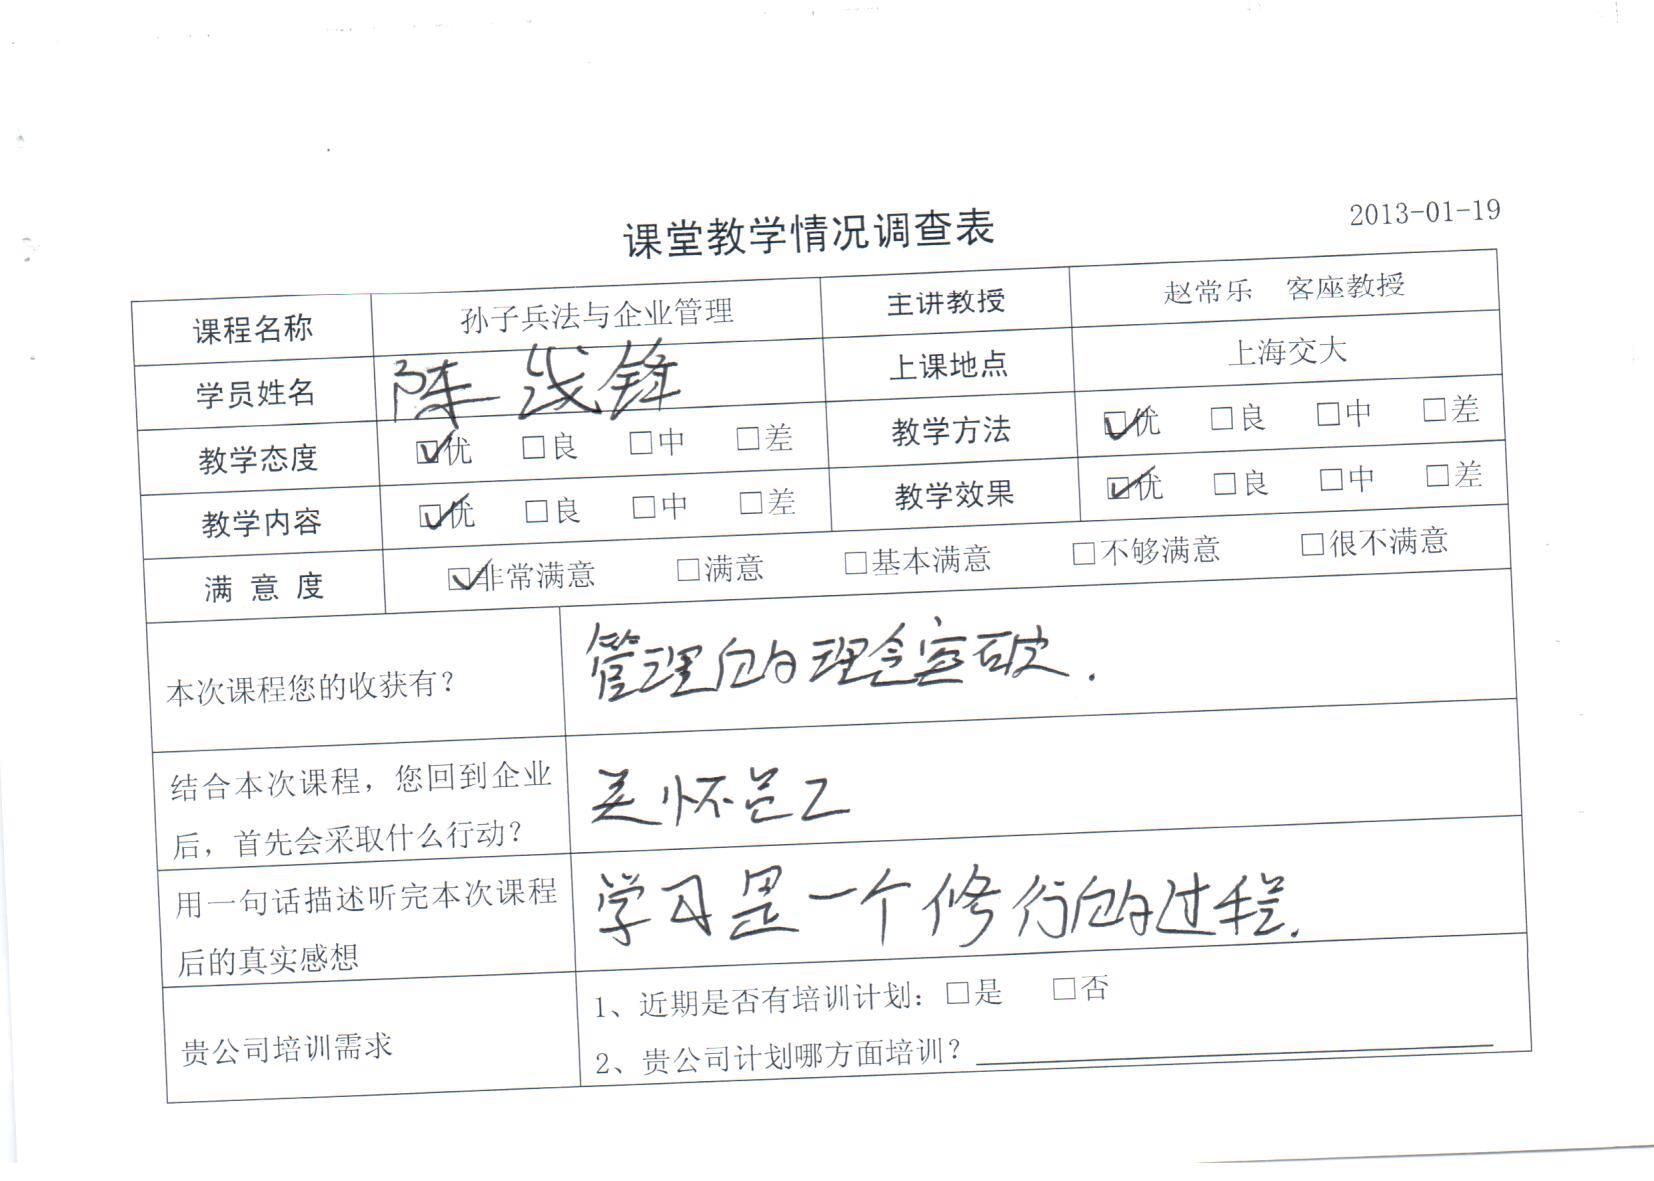 课堂教学情况调查表
2013-01-19
课程名称 孙子兵法与企业管理 主讲教授 赵常乐 客座教授
学员姓名 陈 锋 上课地点 上海交大
教学态度 ☑优 □良 □中 □差 教学方法 ☑优 □良 □中 □差
教学内容 ☑优 □良 □中 □差 教学效果 ☑优 □良 □中 □差
满 意 度 ☑非常满意 □满意 □基本满意 □不够满意 □很不满意
本次课程您的收获有？ 管理的理念突破.
结合本次课程，您回到企业
后，首先会采取什么行动？
关怀员工
用一句话描述听完本次课程
后的真实感想
学习是一个修行的过程.
贵公司培训需求
1、近期是否有培训计划：□是 □否
2、贵公司计划哪方面培训？